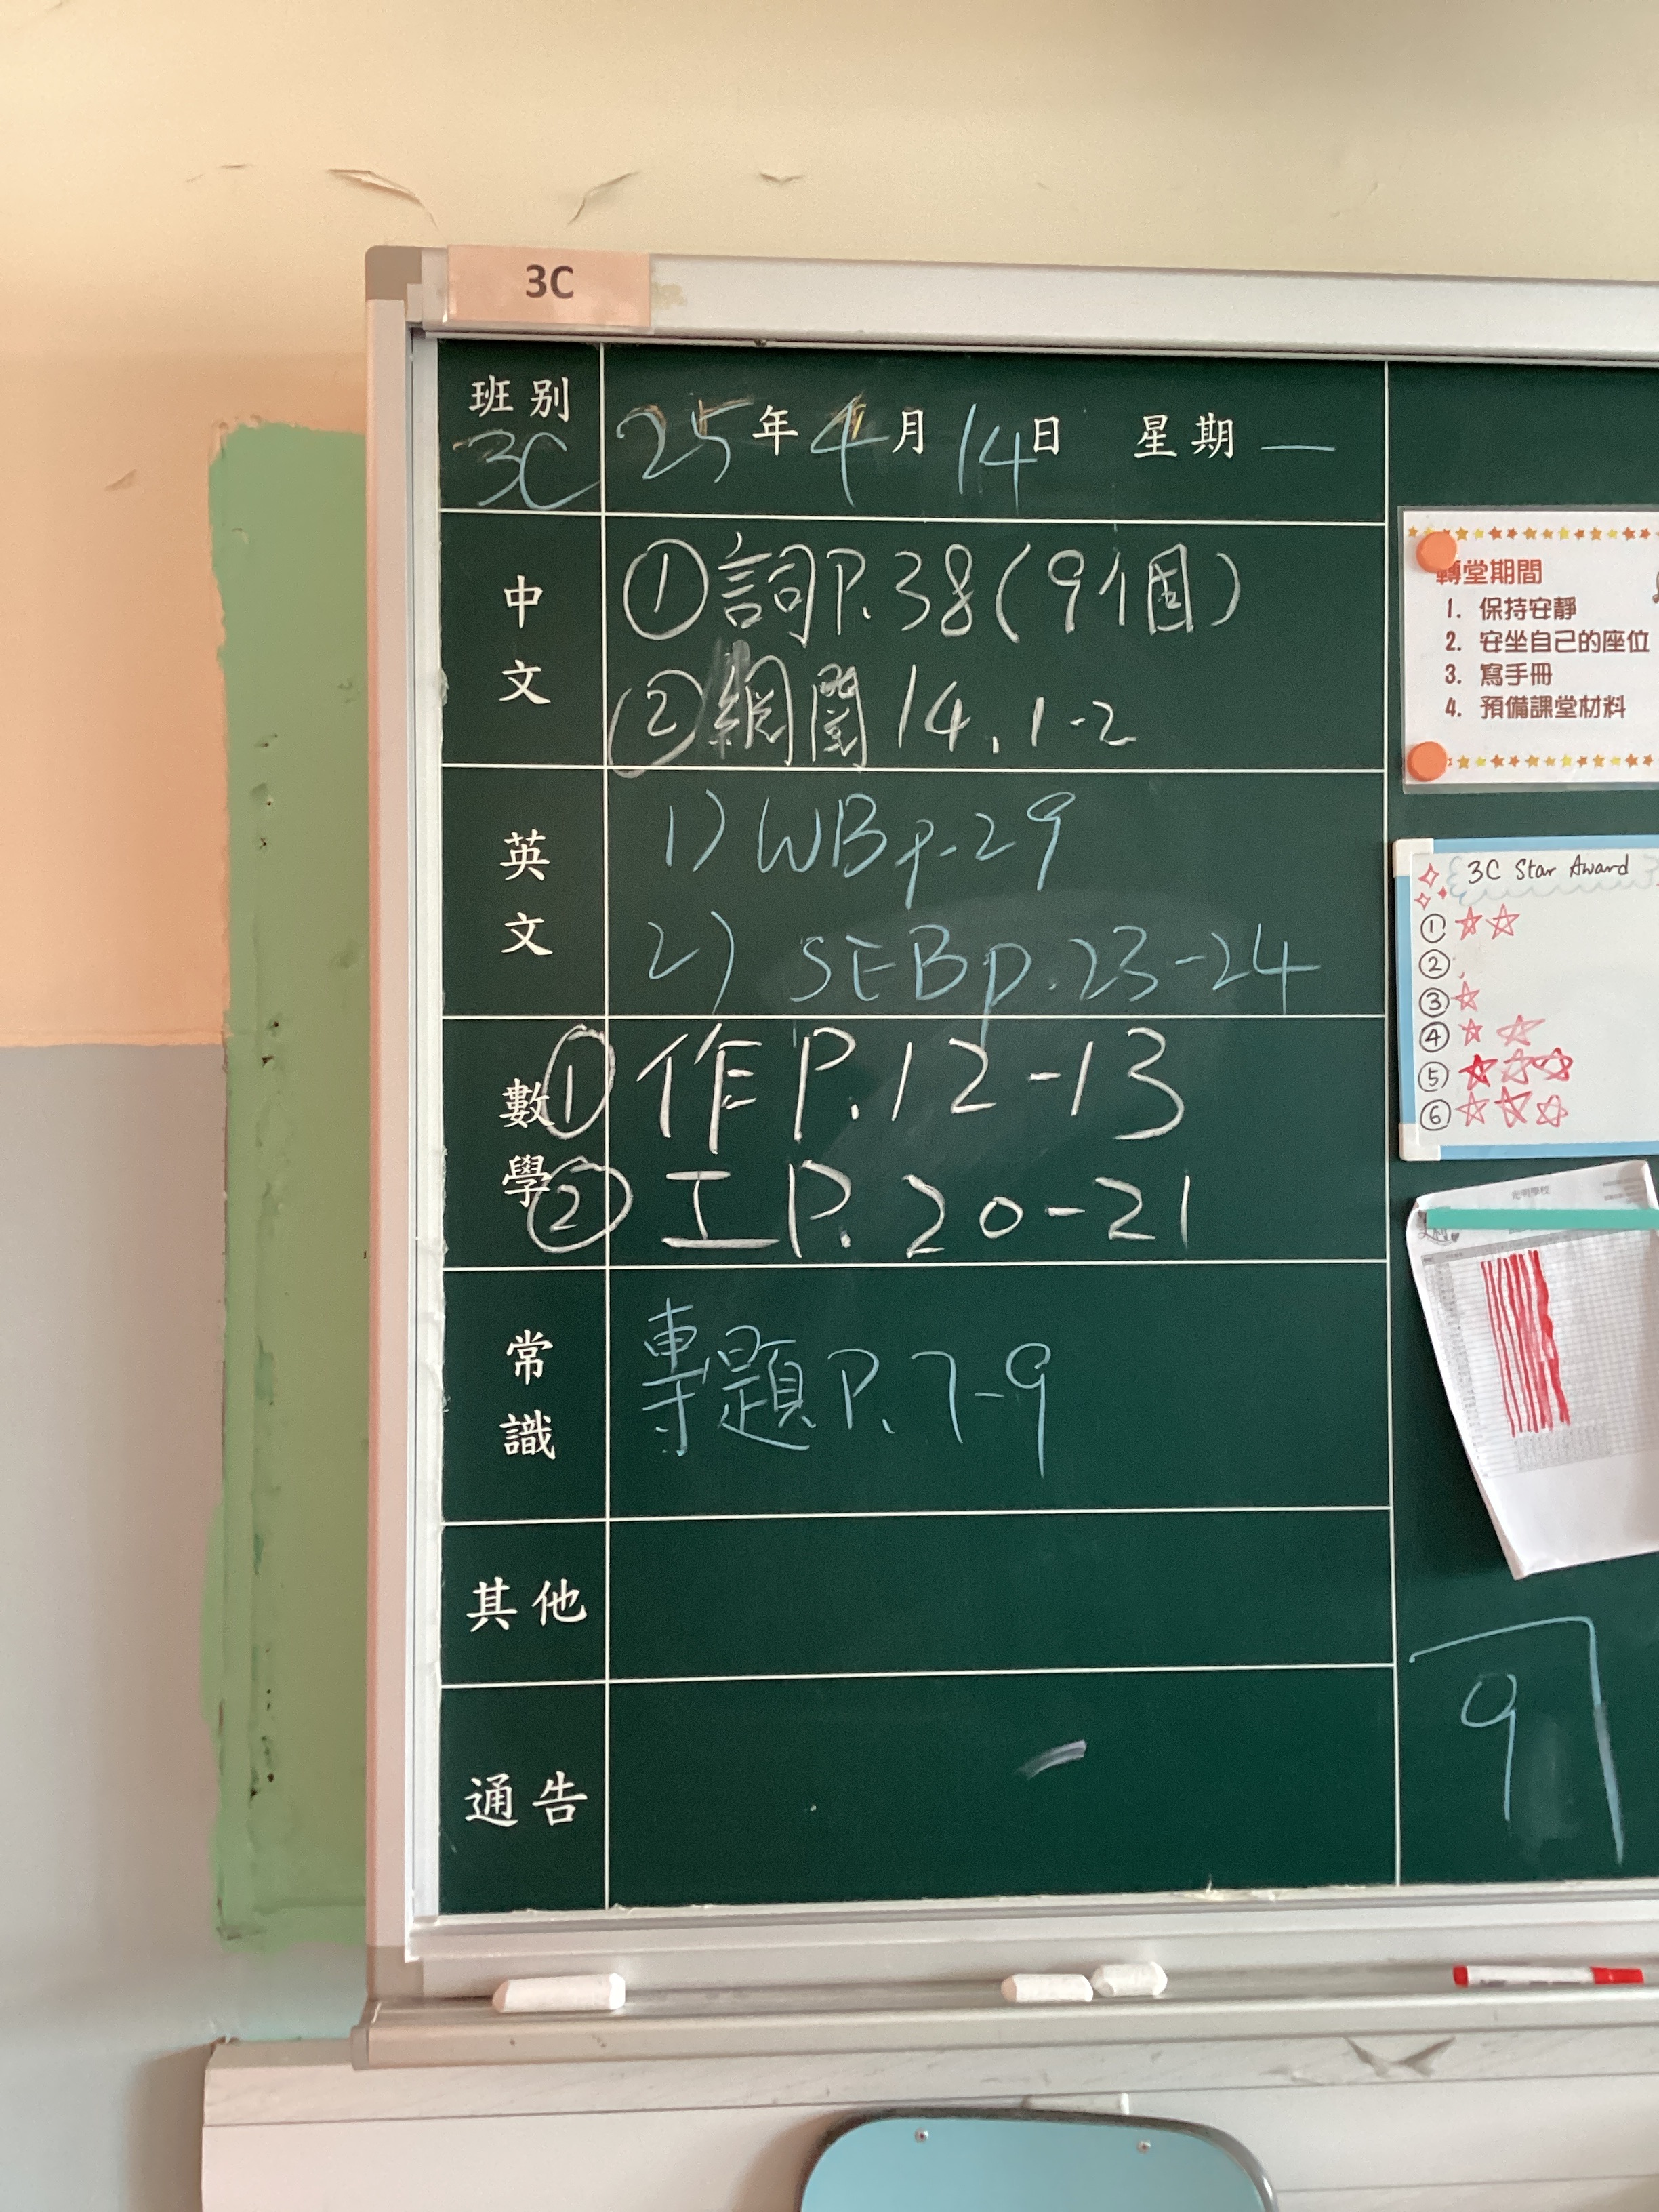 3C
班別
3C
25年4月14日 星期一
中文
①詞P.38(9個)
②網閱14.1-2
英文
1) WB p.29
2) SEB p.23-24
數學
①作P.12-13
②工P.20-21
常識
專題P.7-9
其他
通告
轉堂期間
1. 保持安靜
2. 安坐自己的座位
3. 寫手冊
4. 預備課堂材料
3C Star Award
①
②
③
④
⑤
⑥
光明學校
9